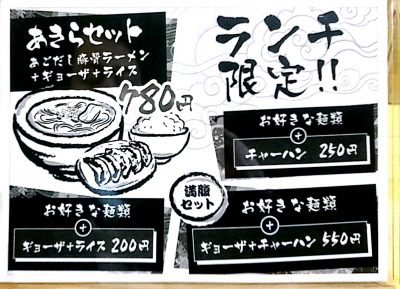 あきらセット
あごだし豚骨ラーメン
+ギョーザ+ライス
780円
ランチ
限定!!
お好きな麺類
+
チャーハン 250円
満腹
セット
お好きな麺類
+
ギョーザ+ライス 200円
お好きな麺類
+
ギョーザ+チャーハン 550円